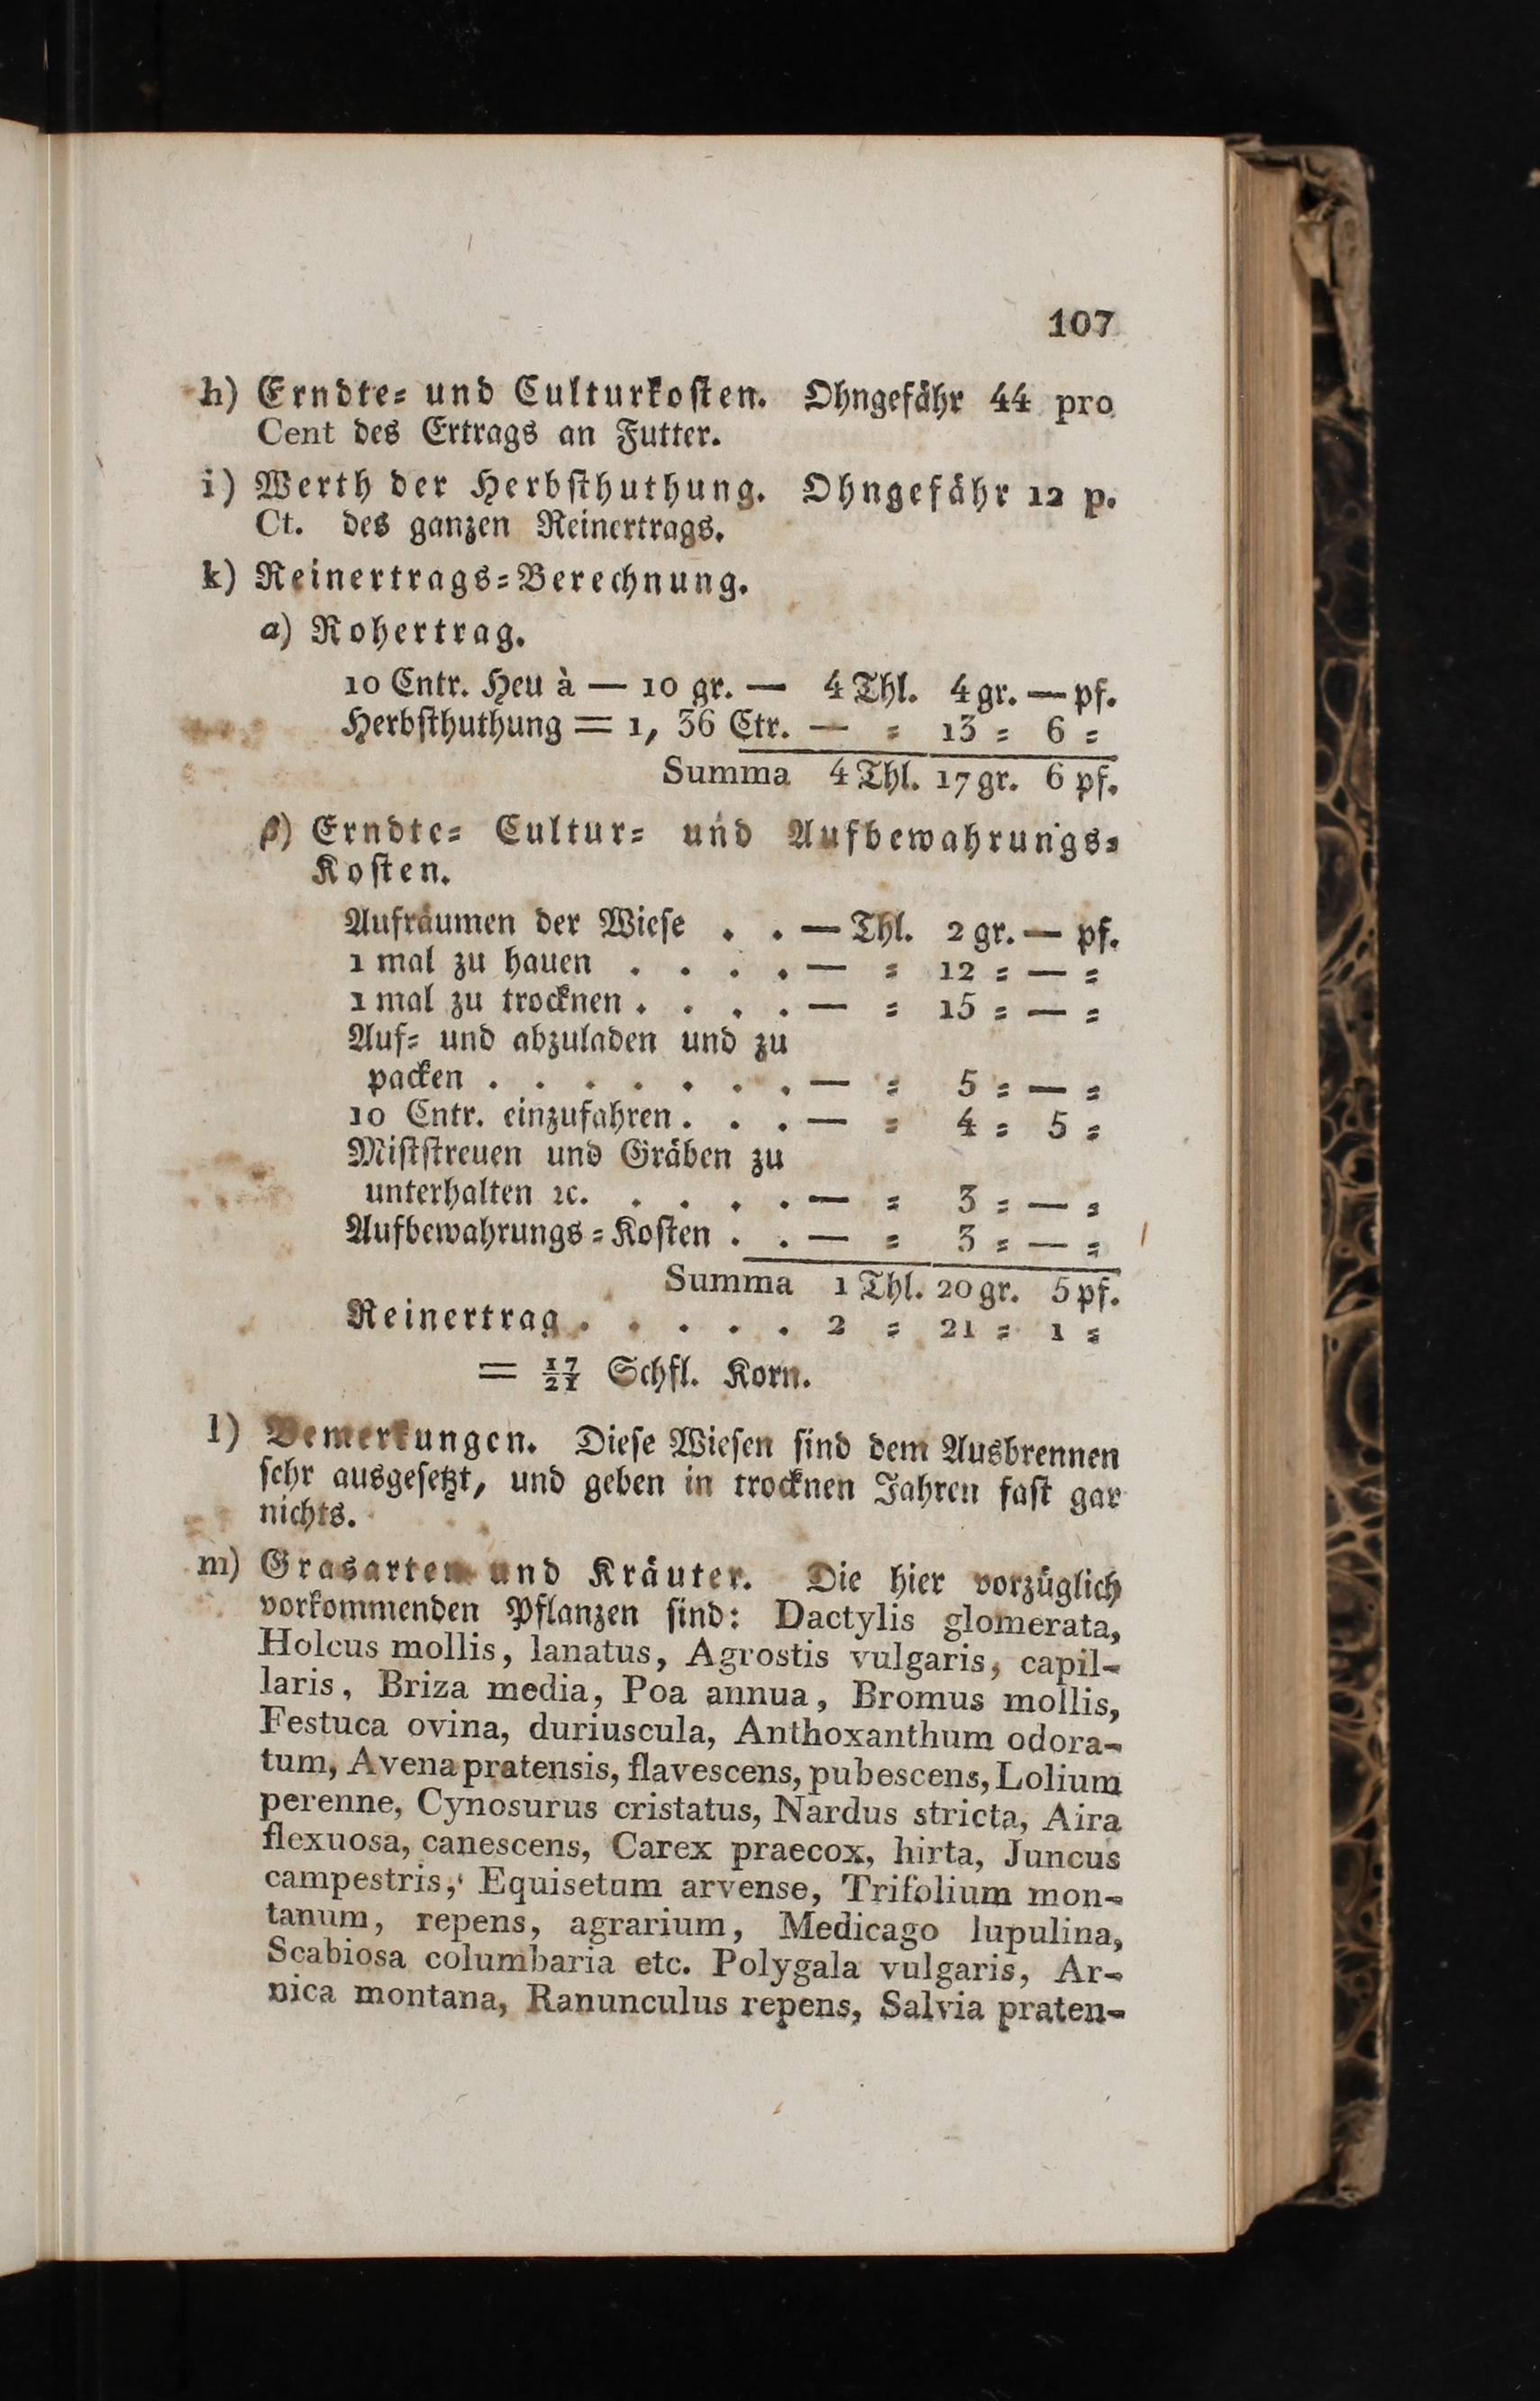 107
h) Erndte= und Culturkoſten. Ohngefähr 44 pro
Cent des Ertrags an Futter.
i) Werth der Herbſthuthung. Ohngefähr 12 p.
Ct. des ganzen Reinertrags.
k) Reinertrags=Berechnung.
α) Rohertrag.
10 Cntr. Heu à — 10 gr. — 4 Thl. 4 gr. — pf.
Herbſthuthung = 1, 36 Ctr. — = 13 = 6 =
Summa 4 Thl. 17 gr. 6 pf.
β) Erndte= Cultur= und Aufbewahrungs=
Koſten.
Aufräumen der Wieſe . . — Thl. 2 gr. — pf.
1 mal zu hauen . . . . — = 12 = — =
1 mal zu trocknen . . . . — = 15 = — =
Auf= und abzuladen und zu
packen . . . . . . . — = 5 = — =
10 Cntr. einzufahren . . . — = 4 = 5 =
Miſtſtreuen und Gräben zu
unterhalten ꝛc. . . . . — = 3 = — =
Aufbewahrungs=Koſten . . — = 3 = — =
Summa 1 Thl. 20 gr. 5 pf.
Reinertrag . . . . . 2 = 21 = 1 =
= 17/21 Schfl. Korn.
l) Bemerkungen. Dieſe Wieſen ſind dem Ausbrennen
ſehr ausgeſetzt, und geben in trocknen Jahren faſt gar
nichts.
m) Grasarten und Kräuter. Die hier vorzüglich
vorkommenden Pflanzen ſind: Dactylis glomerata,
Holcus mollis, lanatus, Agrostis vulgaris, capil-
laris, Briza media, Poa annua, Bromus mollis,
Festuca ovina, duriuscula, Anthoxanthum odora-
tum, Avena pratensis, flavescens, pubescens, Lolium
perenne, Cynosurus cristatus, Nardus stricta, Aira
flexuosa, canescens, Carex praecox, hirta, Juncus
campestris, Equisetum arvense, Trifolium mon-
tanum, repens, agrarium, Medicago lupulina,
Scabiosa columbaria etc. Polygala vulgaris, Ar-
nica montana, Ranunculus repens, Salvia praten-